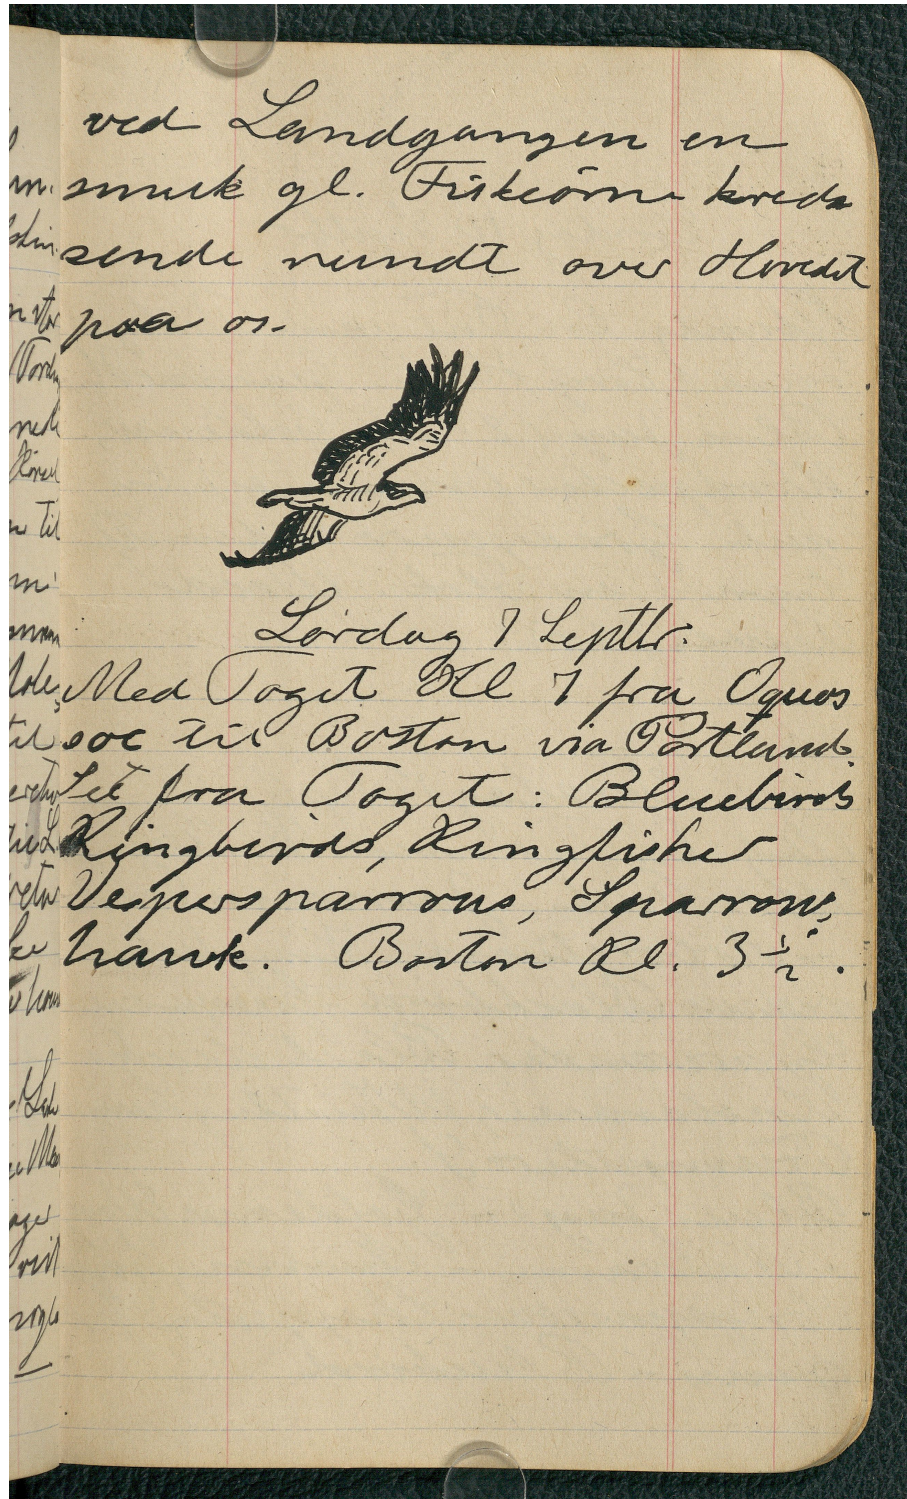 ved Landgangen en
smuk gl. Fiskeørne kreds
sende rundt over Hovedet
paa os.
Lørdag 7 Septbr.
Med Toget Kl 7 fra Oquos
soc til Boston via Portland.
Set fra Toget: Bluebirds
Kingbirds, Kingfisher
Vespersparrows, Sparrow,
hawk. Boston Kl. 3 1/2.